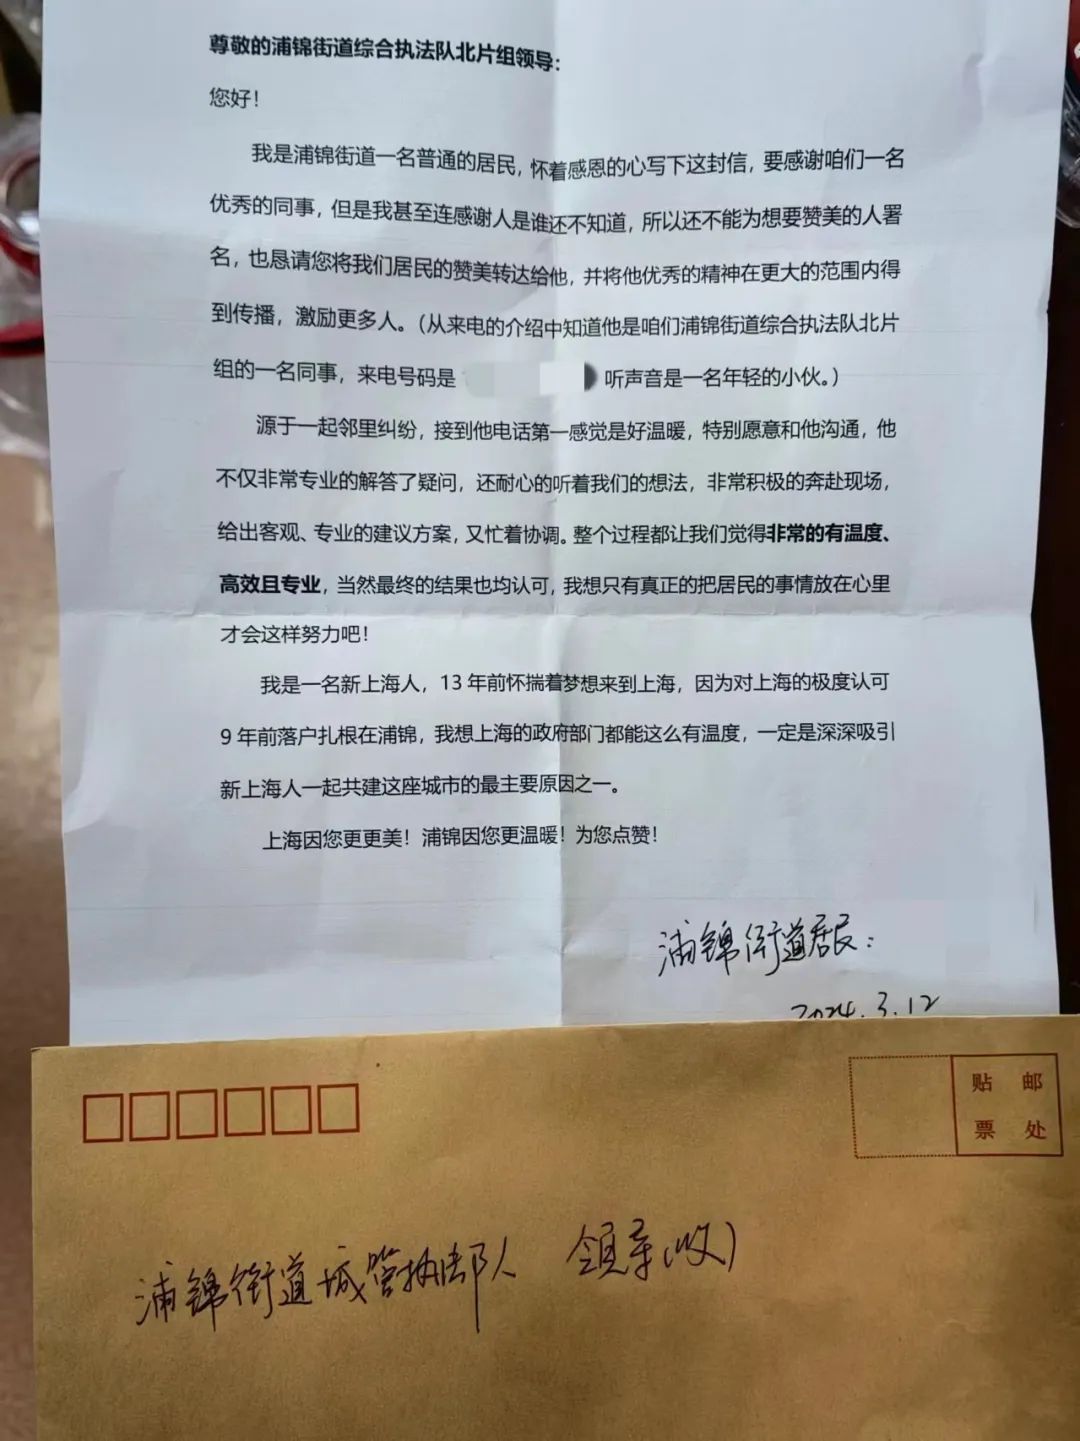 尊敬的浦锦街道综合执法队北片组领导：
您好！
我是浦锦街道一名普通的居民，怀着感恩的心写下这封信，要感谢咱们一名
优秀的同事，但是我甚至连感谢人是谁还不知道，所以还不能为想要赞美的人署
名，也恳请您将我们居民的赞美转达给他，并将他优秀的精神在更大的范围内得
到传播，激励更多人。（从来电的介绍中知道他是咱们浦锦街道综合执法队北片
组的一名同事，来电号码是 听声音是一名年轻的小伙。）
源于一起邻里纠纷，接到他电话第一感觉是好温暖，特别愿意和他沟通，他
不仅非常专业的解答了疑问，还耐心的听着我们的想法，非常积极的奔赴现场，
给出客观、专业的建议方案，又忙着协调。整个过程都让我们觉得非常的有温度、
高效且专业，当然最终的结果也均认可，我想只有真正的把居民的事情放在心里
才会这样努力吧！
我是一名新上海人，13 年前怀揣着梦想来到上海，因为对上海的极度认可
9 年前落户扎根在浦锦，我想上海的政府部门都能这么有温度，一定是深深吸引
新上海人一起共建这座城市的最主要原因之一。
上海因您更更美！浦锦因您更温暖！为您点赞！
浦锦街道居民：
2024.3.12
贴 邮
票 处
浦锦街道城管执法队 领导（收）